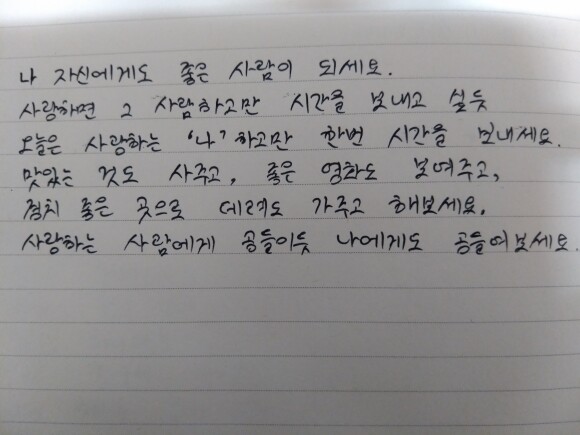 나 자신에게도 좋은 사람이 되세요.
사랑하면 그 사람하고만 시간을 보내고 싶듯
오늘은 사랑하는 '나'하고만 한번 시간을 보내세요.
맛있는 것도 사주고, 좋은 영화도 보여주고,
경치 좋은 곳으로 데려도 가주고 해보세요.
사랑하는 사람에게 공들이듯 나에게도 공들여보세요.